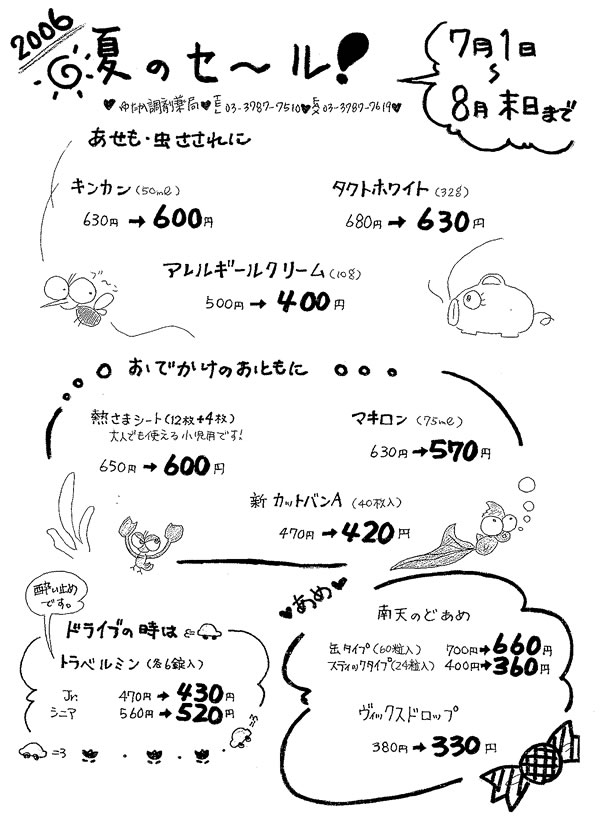 2006
夏のセ〜ル!
7月1日
〜
8月末日まで
♥ゆたか調剤薬局♥TEL 03-3787-7510♥FAX 03-3787-7619♥
あせも・虫さされに
キンカン(50ml)
630円→600円
タクトホワイト(32g)
680円→630円
アレルギールクリーム(10g)
500円→400円
ブ〜ン
おでかけのおともに
熱さまシート(12枚+4枚)
大人でも使える小児用です!
650円→600円
マキロン(75ml)
630円→570円
新カットバンA(40枚入)
470円→420円
酔い止め
です。
ドライブの時は
トラベルミン(各6錠入)
Jr. 470円→430円
シニア 560円→520円
♥あめ♥
南天のどあめ
缶タイプ(60粒入) 700円→660円
スティックタイプ(24粒入) 400円→360円
ヴィックスドロップ
380円→330円